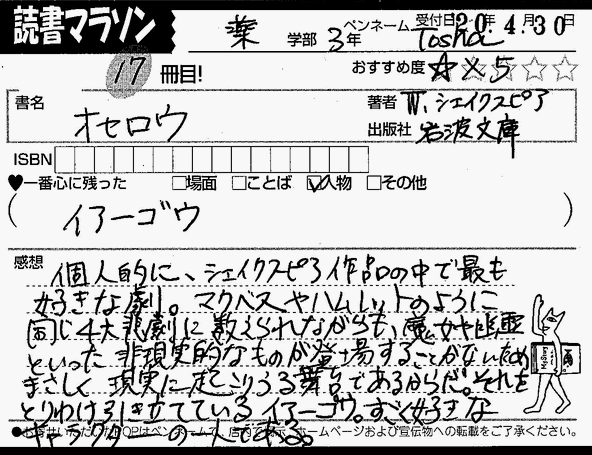 読書マラソン
薬 学部 3年 ペンネーム Tosha 受付日 20年 4月30日
17 冊目! おすすめ度 ☆×5
書名 オセロウ
著者 W.シェイクスピア
出版社 岩波文庫
ISBN
♥一番心に残った □場面 □ことば ☑人物 □その他
( イアーゴウ )
感想
個人的に、シェイクスピア作品の中で最も
好きな劇。マクベスやハムレットのように
同じ4大悲劇に数えられながらも、魔女や幽霊
といった非現実的なものが登場することがないため
まさしく現実に起こりうる舞台であるからだ。それを
とりわけ引き立てているイアーゴウ。すごく好きな
キャラクターの一人である。